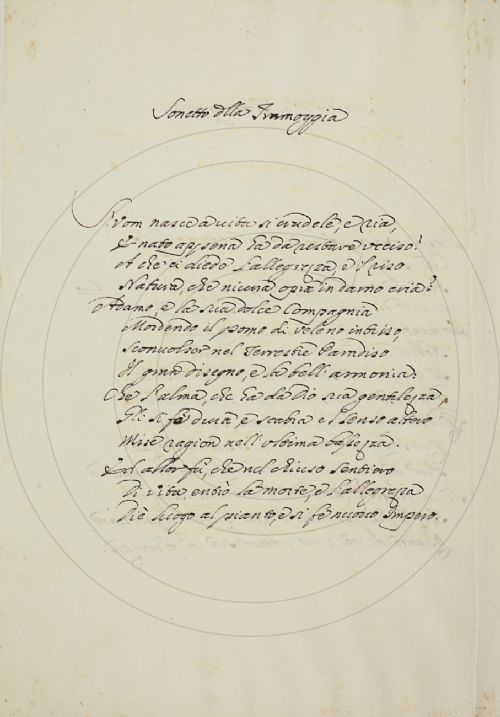 Sonetto della Tramoggia
L'uom nasce a vita si crudele, e ria,
E nato appena ha da restare ucciso?
A che ci diede l'allegrezza, e il riso
Natura, che niuna opra in damo cria?
Adamo, e la sua dolce Compagnia
Mordendo il pomo di veleno intriso,
Sconvolser nel Terrestre Paradiso
Il gran disegno, e la bell' armonia:
Che l'alma, che ha da Dio sua gentilezza,
si fè e scabia e'l senso altero
Mise ragion nell' ultima bassezza.
Ed allor fù, che nel chiuso sentiero
Di vita entrò la morte, e l'allegrezza
Diè luogo al pianto, e si fè nuovo Impero.